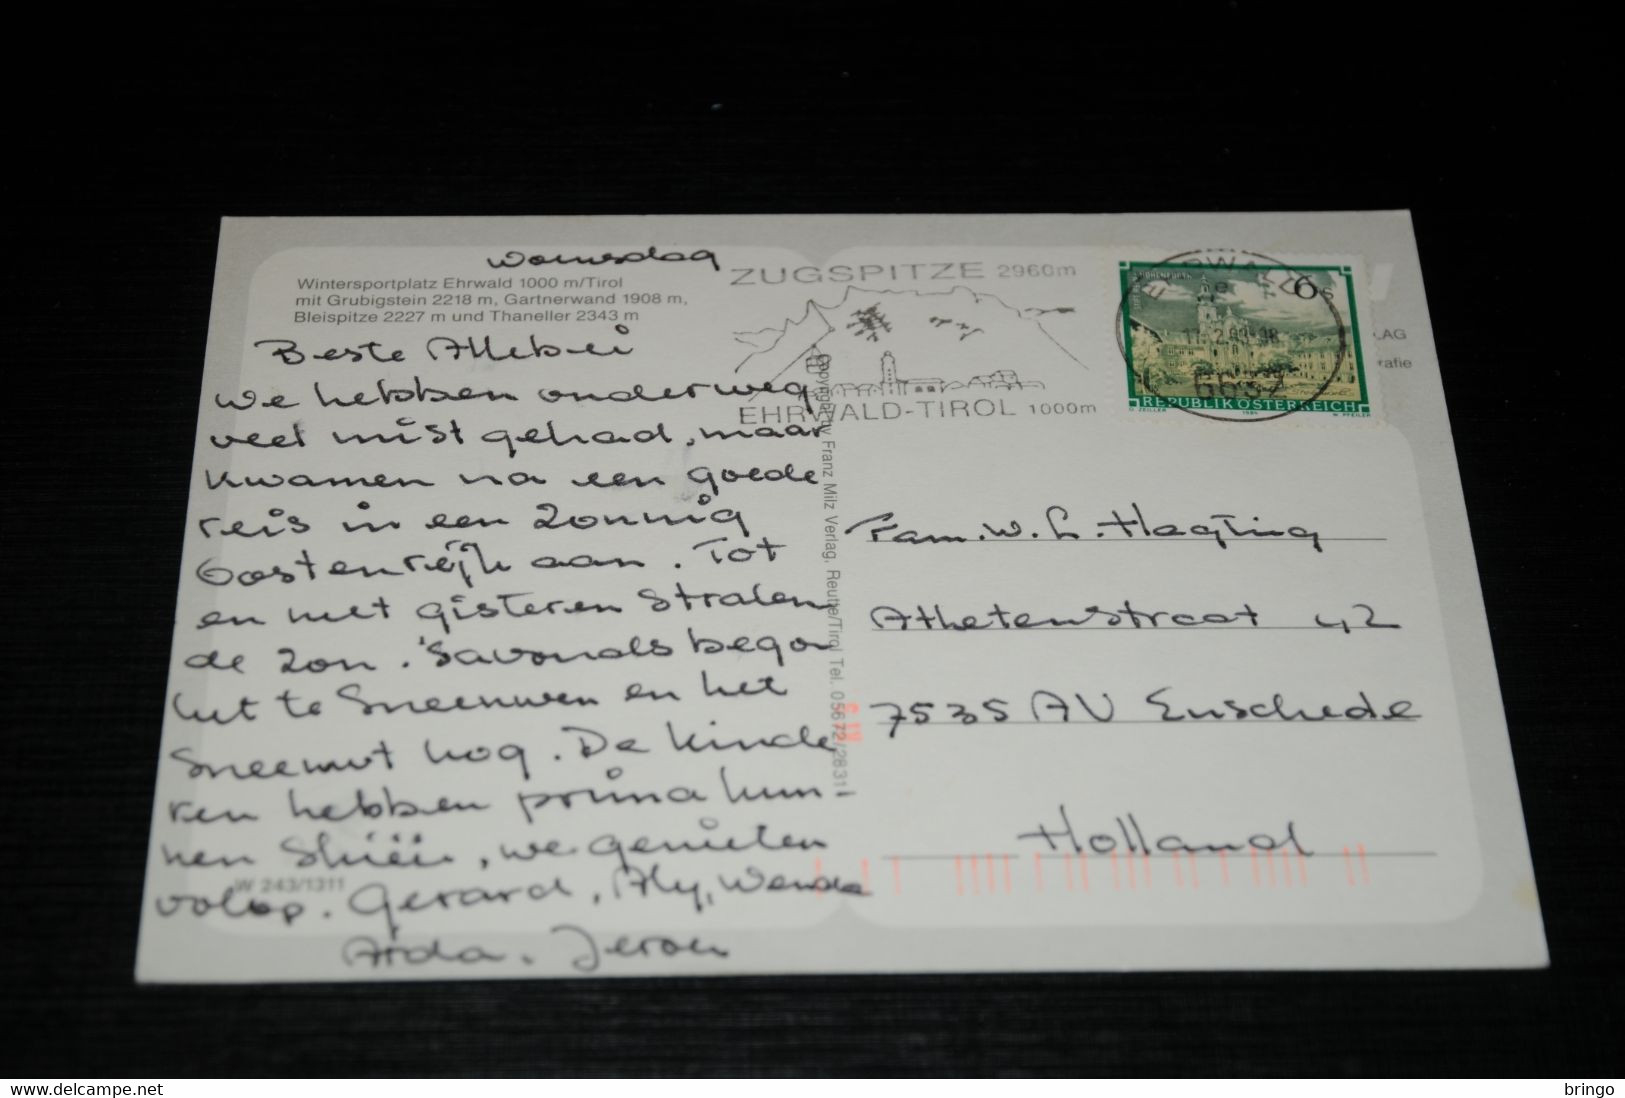 Woensdag
Wintersportplatz Ehrwald 1000 m/Tirol
mit Grubigstein 2218 m, Gartnerwand 1908 m,
Bleispitze 2227 m und Thaneller 2343 m
Beste Allebei
We hebben onderweg
veel mist gehad, maar
kwamen na een goede
reis in een zonnig
Oostenrijk aan. Tot
en met gisteren stralen
de zon. 's avonds begon
het te sneeuwen en het
sneeuwt nog. De kinde
ren hebben prima kun-
nen skiën, we genieten
volop. Gerard, Aly, Wenda
Arda. Jeroen
W 243/1311
ZUGSPITZE 2960m
EHRWALD-TIROL 1000m
Copyright by Franz Milz Verlag, Reutte/Tirol Tel. 05672/2831
EHRWALD
6632
6 S
REPUBLIK ÖSTERREICH
LAG
rafie
Fam. W. L. Hagting
Athetenstraat 42
7535 AV Enschede
Holland
© www.delcampe.net
bringo